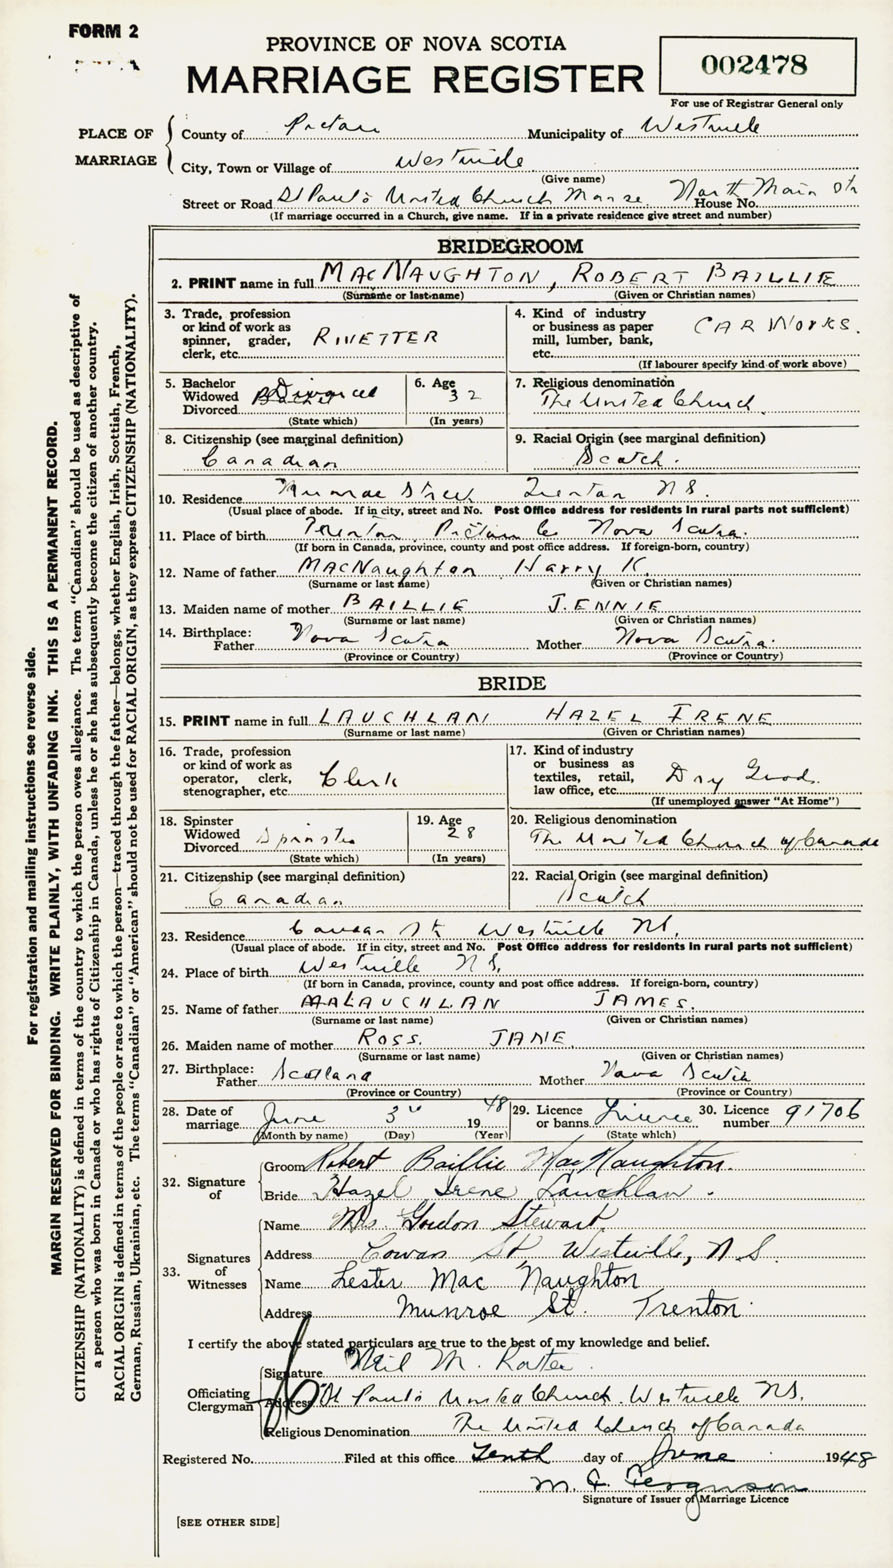 FORM 2
PROVINCE OF NOVA SCOTIA
MARRIAGE REGISTER
002478
For use of Registrar General only
PLACE OF MARRIAGE
County of Pictou Municipality of Westville
City, Town or Village of Westville
(Give name)
Street or Road St Paul's United Church Manse. North Main St House No.
(If marriage occurred in a Church, give name. If in a private residence give street and number)
BRIDEGROOM
2. PRINT name in full MACNAUGHTON, ROBERT BAILLIE
(Surname or last name) (Given or Christian names)
3. Trade, profession or kind of work as spinner, grader, clerk, etc. RIVETTER
4. Kind of industry or business as paper mill, lumber, bank, etc. CAR WORKS.
(If labourer specify kind of work above)
5. Bachelor Widowed Divorced Divorced
(State which)
6. Age 32
(In years)
7. Religious denomination The United Church.
8. Citizenship (see marginal definition) Canadian
9. Racial Origin (see marginal definition) Scotch.
10. Residence Munroe Street Trenton N S.
(Usual place of abode. If in city, street and No. Post Office address for residents in rural parts not sufficient)
11. Place of birth Trenton Pictou Co Nova Scotia.
(If born in Canada, province, county and post office address. If foreign-born, country)
12. Name of father MACNaughton Harry K.
(Surname or last name) (Given or Christian names)
13. Maiden name of mother BAILLIE JENNIE
(Surname or last name) (Given or Christian names)
14. Birthplace: Father Nova Scotia Mother Nova Scotia.
(Province or Country) (Province or Country)
BRIDE
15. PRINT name in full LAUCHLAN HAZEL IRENE
(Surname or last name) (Given or Christian names)
16. Trade, profession or kind of work as operator, clerk, stenographer, etc. Clerk
17. Kind of industry or business as textiles, retail, law office, etc. Dry Goods.
(If unemployed answer "At Home")
18. Spinster Widowed Divorced Spinster
(State which)
19. Age 28
(In years)
20. Religious denomination The United Church of Canada
21. Citizenship (see marginal definition) Canadian
22. Racial Origin (see marginal definition) Scotch
23. Residence Cowan St. Westville NS.
(Usual place of abode. If in city, street and No. Post Office address for residents in rural parts not sufficient)
24. Place of birth Westville N S.
(If born in Canada, province, county and post office address. If foreign-born, country)
25. Name of father LAUCHLAN JAMES.
(Surname or last name) (Given or Christian names)
26. Maiden name of mother ROSS. JANE.
(Surname or last name) (Given or Christian names)
27. Birthplace: Father Scotland Mother Nova Scotia
(Province or Country) (Province or Country)
28. Date of marriage June 3rd 1948
(Month by name) (Day) (Year)
29. Licence or banns Licence
(State which)
30. Licence number 91706
32. Signature of
Groom Robert Baillie MacNaughton.
Bride Hazel Irene Lauchlan.
33. Signatures of Witnesses
Name Mrs. Gordon Stewart
Address Cowan St, Westville, N S.
Name Lester Mac Naughton
Address Munroe St. Trenton
I certify the above stated particulars are true to the best of my knowledge and belief.
Officiating Clergyman
Signature Neil M.
Address St Paul's United Church. Westville NS.
Religious Denomination The United Church of Canada
Registered No. Filed at this office Tenth day of June 1948
Ferguson
Signature of Issuer of Marriage Licence
[SEE OTHER SIDE]
For registration and mailing instructions see reverse side.
MARGIN RESERVED FOR BINDING. WRITE PLAINLY, WITH UNFADING INK. THIS IS A PERMANENT RECORD.
CITIZENSHIP (NATIONALITY) is defined in terms of the country to which the person owes allegiance. The term "Canadian" should be used as descriptive of
a person who was born in Canada or who has rights of Citizenship in Canada, unless he or she has subsequently become the citizen of another country.
RACIAL ORIGIN is defined in terms of the people or race to which the person—traced through the father—belongs, whether English, Irish, Scottish, French,
German, Russian, Ukrainian, etc. The terms "Canadian" or "American" should not be used for RACIAL ORIGIN, as they express CITIZENSHIP (NATIONALITY).